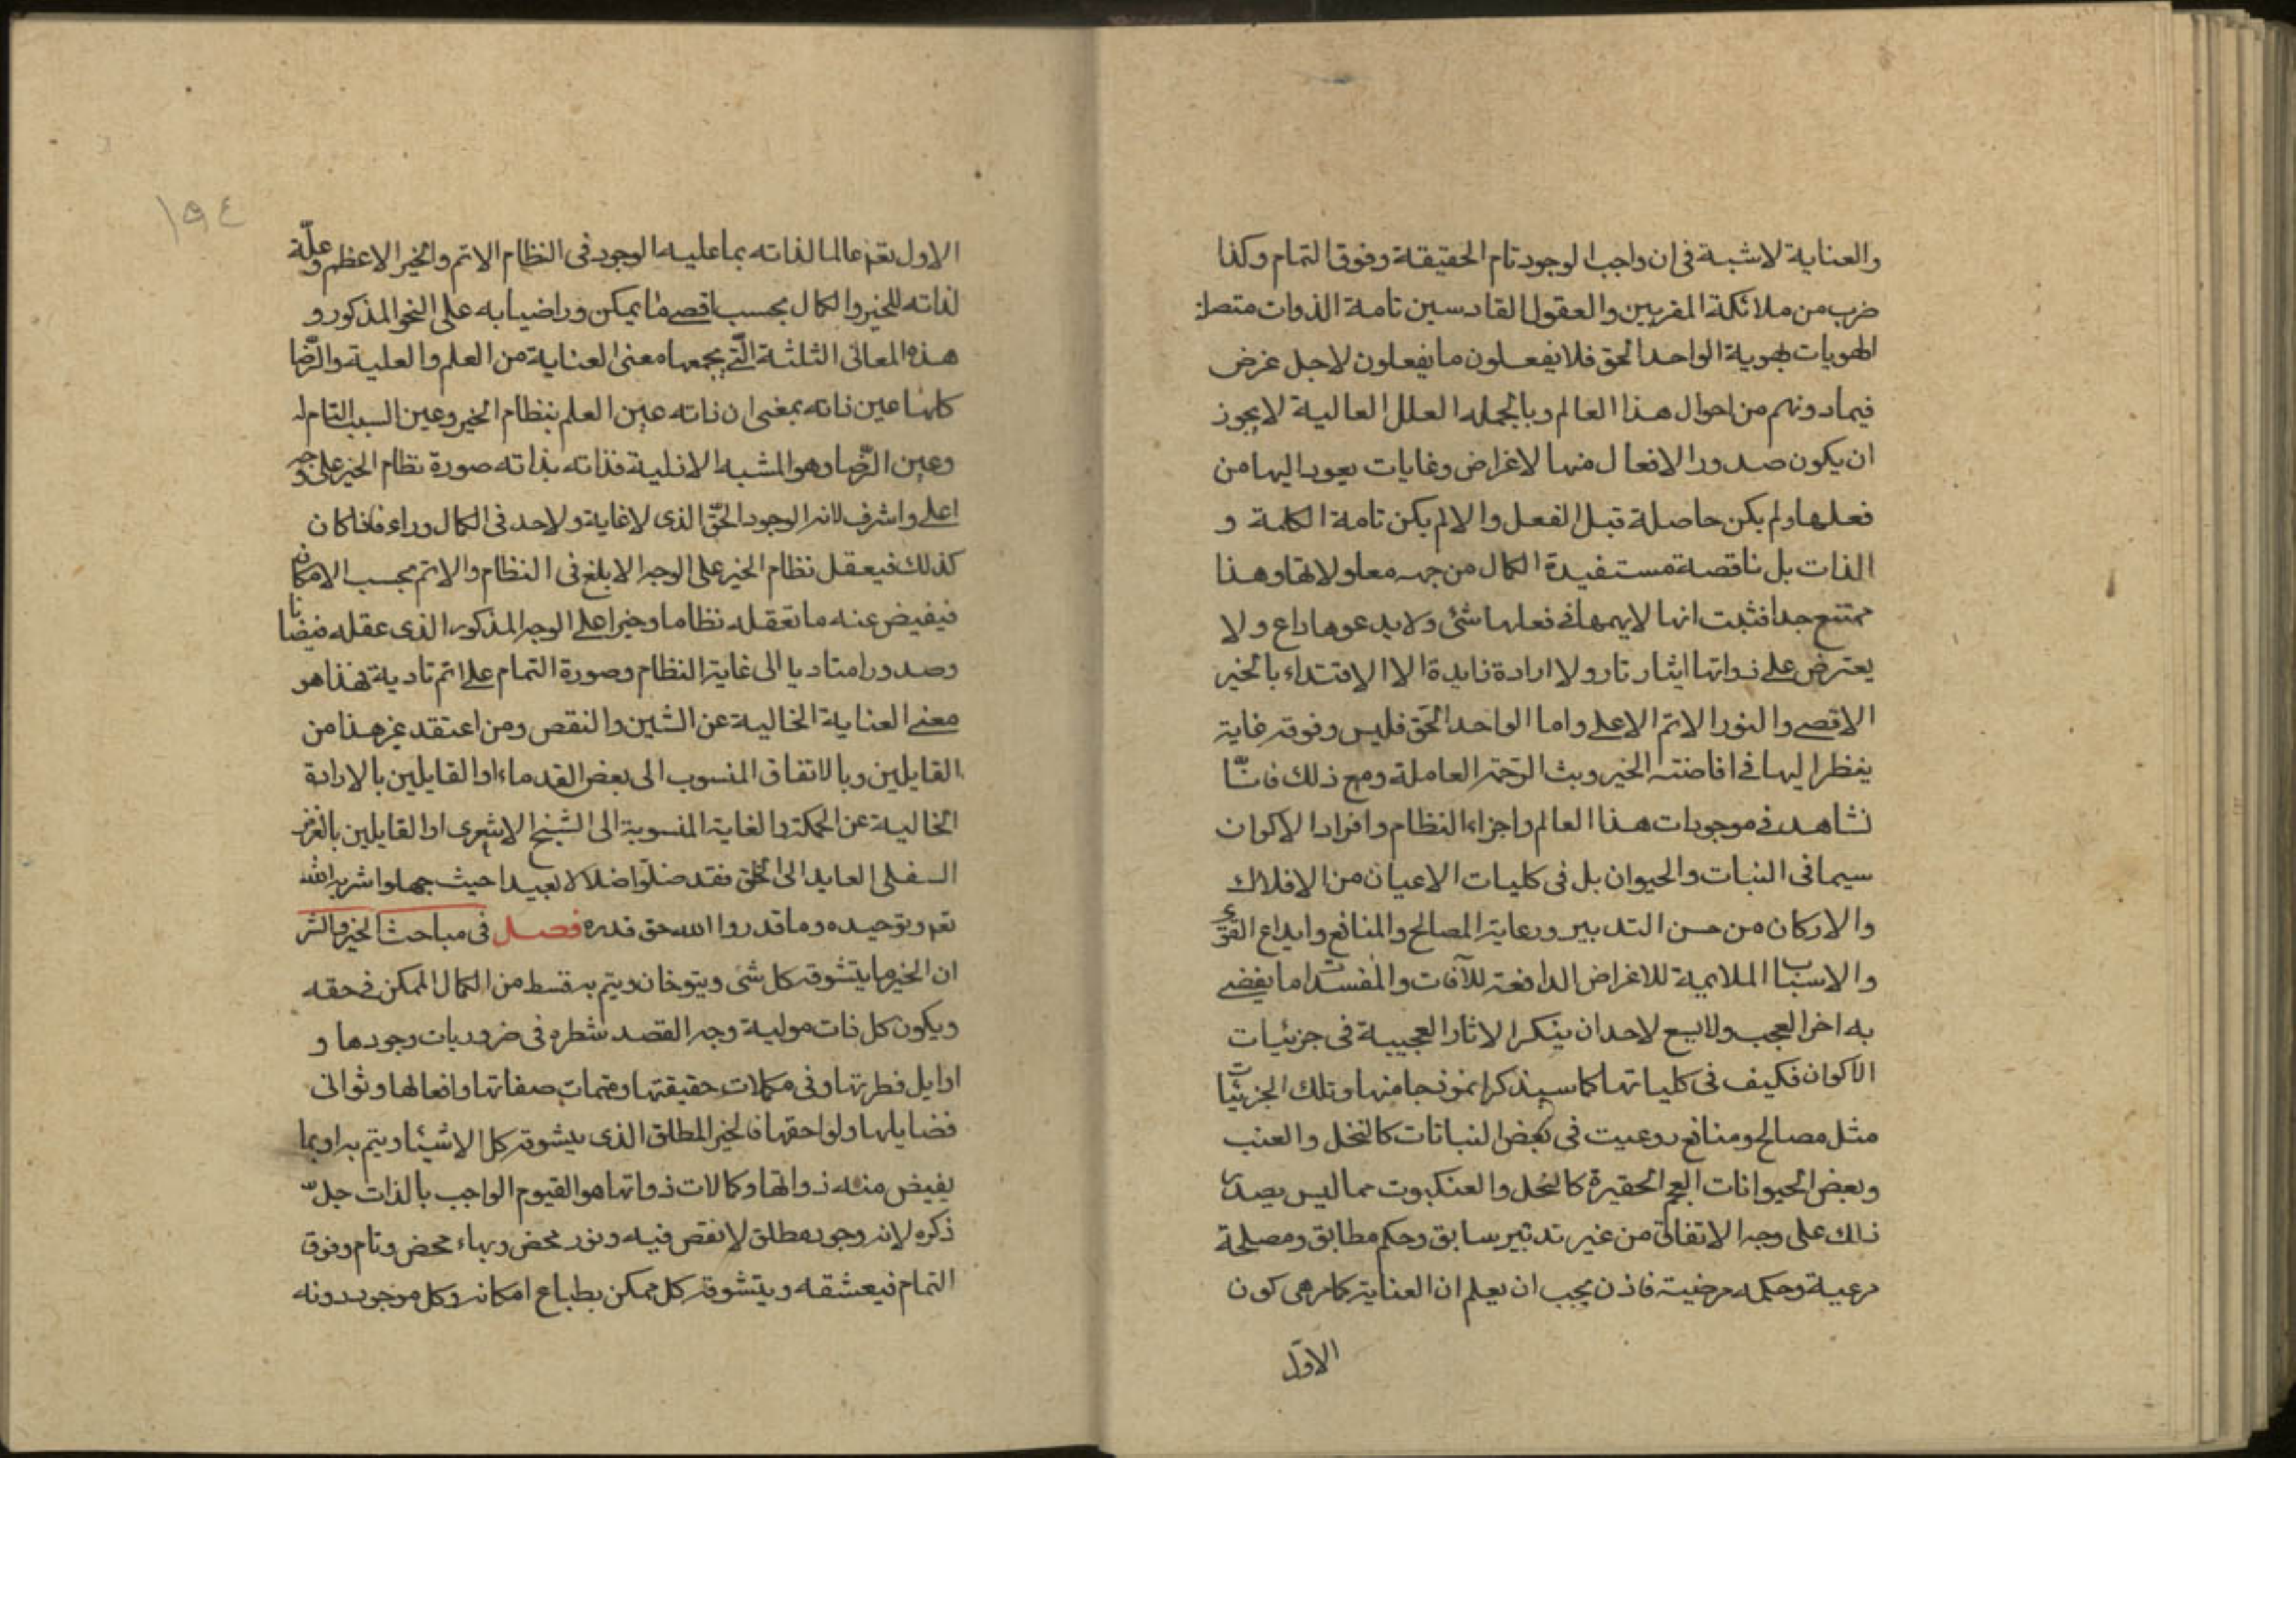 والعناية لا شبهة فى ان واجب الوجود تام الحقيقة وفوق التمام وكذا
ضرب من ملائكة المقربين والعقول القادسين تامة الذوات متصلة
الهويات بهوية الواحد الحق فلا يفعلون ما يفعلون لاجل غرض
فيما دونهم من احوال هذا العالم وبالجمله العلل العالية لا يجوز
ان يكون صدور الافعال منها لاغراض وغايات يعود اليها من
فعلها ولم يكن حاصلة قبل الفعل والا لم يكن تامة الكلمة و
الذات بل ناقصة مستفيدة الكمال من جهه معلولاتها وهذا
ممتنع جدا فثبت انها لا يهمها فى فعلها شئ ولا يدعوها داع و لا
يعترض على ذواتها ايثار تار ولا ارادة زايدة الا الاقتداء بالخير
الاقصى والنور الاتم الاعلى واما الواحد الحق فليس وفوقه غاية
ينظر اليها فى افاضته الخير وبث الرحمة العاملة ومع ذلك فانّا
نشاهد فى موجودات هذا العالم واجزاء النظام وافراد الاكوان
سيما فى النبات والحيوان بل فى كليات الاعيان من الافلاك
والاركان من حسن التدبير ورعاية المصالح والمنافع وايداع القوى
والاسباب الملايمة للاغراض الدافعة للآفات والمفسدات ما يفضى
به اخر العجب ولا يسع لاحد ان ينكر الاثار العجيبة فى جزئيات
الاكوان فكيف فى كلياتها كما سيذكر انموذجا منها وتلك الجزئيات
مثل مصالح ومنافع روعيت فى بعض النباتات كالنخل والعنب
وبعض الحيوانات العجم الحقيرة كالنحل والعنكبوت مما ليس يصدر
ذلك على وجه الاتفاق من غير تدبير سابق وحكم مطابق ومصلحة
مرعية وحكمه مرضية فاذن يجب ان يعلم ان العناية كما مر هى كون
الاول
١٩٤
الاول تعم عالما لذاته بما عليه الوجود فى النظام الاتم والخير الاعظم وعلّة
لذاته للخير والكمال بحسب اقصى ما يمكن وراضيا به على النحو المذكور و
هذه المعانى الثلثة الّتى يجمعها معنى العناية من العلم والعلية والرّضا
كلها عين ذاته بمعنى ان ذاته عين العلم بنظام الخير وعين السبب التام له
وعين الرّضا وهو المشبه الازلية فذاته بذاته صورة نظام الخير على وجه
اعلى واشرف لانه الوجود الحقّ الذى لا غاية ولا حد فى الكمال وراءه فاذا كان
كذلك فيعقل نظام الخير على الوجه الابلغ فى النظام والاتم بحسب الامكان
فيفيض عنه ما تعقله نظاما وخيرا على الوجه المذكور الذى عقله فيضانا
وصدورا متاديا الى غاية النظام وصورة التمام على اتم تادية فهذا هو
معنى العناية الخالية عن الشين والنقص ومن اعتقد غير هذا من
القايلين وبالاتفاق المنسوب الى بعض القدماء او القايلين بالارادة
الخالية عن الحكمة والغاية المنسوبة الى الشيخ الاشعرى او القايلين بالغرض
السفلى العايد الى الخلق فقد ضلّوا ضلالا بعيدا حيث جهلوا الله
تعم وتوحيده وما قدروا الله حق قدره فصل فى مباحث الخير والشر
ان الخير ما يتشوقه كل شئ ويتوخان ويتم به قسط من الكمال الممكن فى حقه
ويكون كل ذات مولية وجه القصد شطره فى ضروريات وجودها و
اوايل فطرتها وفى مكملات حقيقتها ومتممات صفاتها وافعالها وثوانى
فضايلها ولواحقها فالخير المطلق الذى يتشوقه كل الاشيئا ويتم به او بما
يفيض منه ذواتها وكمالات ذواتها هو القيوم الواجب بالذات جلّ
ذكره لانه وجود مطلق لا نقص فيه ونور محض وبهاء محض وتام وفوق
التمام فيعشقه ويتشوقه كل ممكن بطباع امكانه وكل موجود دونه